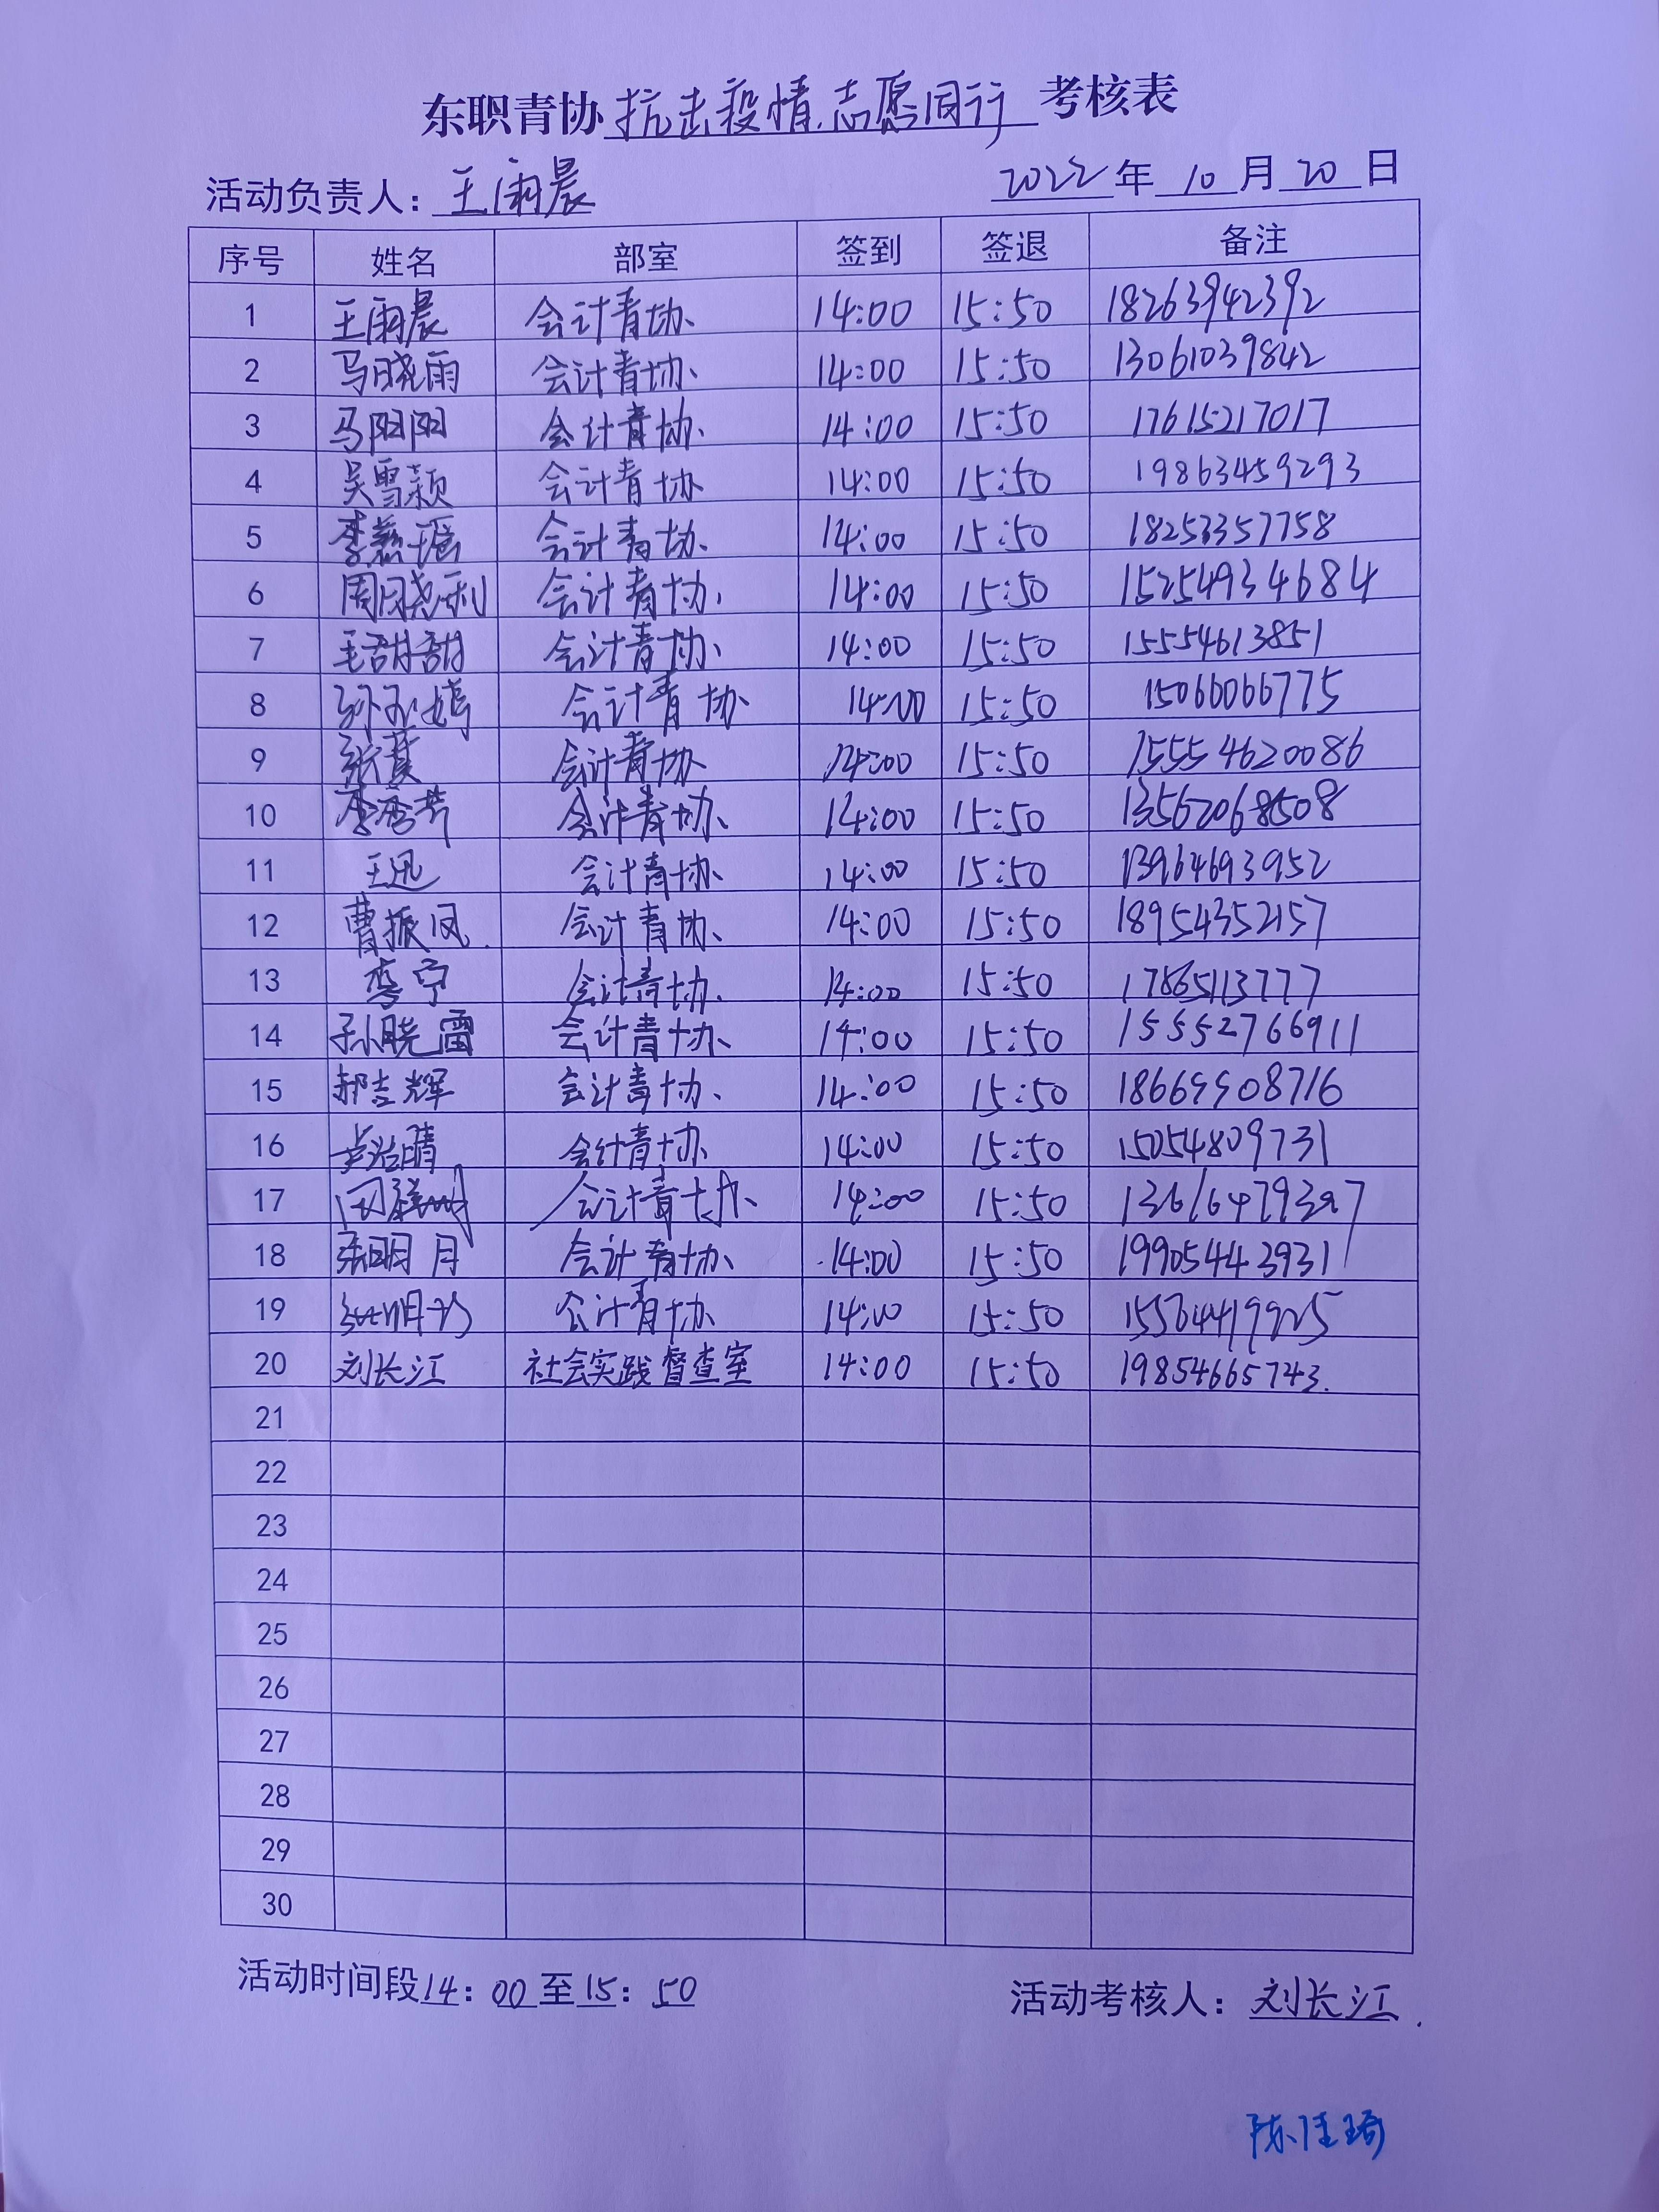 东职青协抗击疫情.志愿同行考核表
活动负责人：王雨晨 2022年10月20日
序号 姓名 部室 签到 签退 备注
1 王雨晨 会计青协 14:00 15:50 18263942392
2 马晓雨 会计青协 14:00 15:50 13061039842
3 马阳阳 会计青协 14:00 15:50 17615217017
4 吴雪颖 会计青协 14:00 15:50 19863459293
5 李 瑶 会计青协 14:00 15:50 18253357758
6 周晓利 会计青协 14:00 15:50 15254934684
7 毛甜甜 会计青协 14:00 15:50 15554613851
8 会计青协 14:00 15:50 15066066775
9 会计青协 14:00 15:50 15554620086
10 李秀芹 会计青协 14:00 15:50 13562068508
11 王迅 会计青协 14:00 15:50 13964693952
12 曹振凤 会计青协 14:00 15:50 18954352157
13 李宁 会计青协 14:00 15:50 17865113777
14 孙晓雷 会计青协 14:00 15:50 15552766911
15 郝吉辉 会计青协 14:00 15:50
16 会计青协 14:00 15:50 15054809731
17 会计青协 14:00 15:50
18 张明月 会计青协 14:00 15:50 19905443931
19 会计青协 14:00 15:50
20 刘长江 社会实践督查室 14:00 15:50 19854665743.
21
22
23
24
25
26
27
28
29
30
活动时间段14：00至15：50 活动考核人：刘长江.
陈佳琦